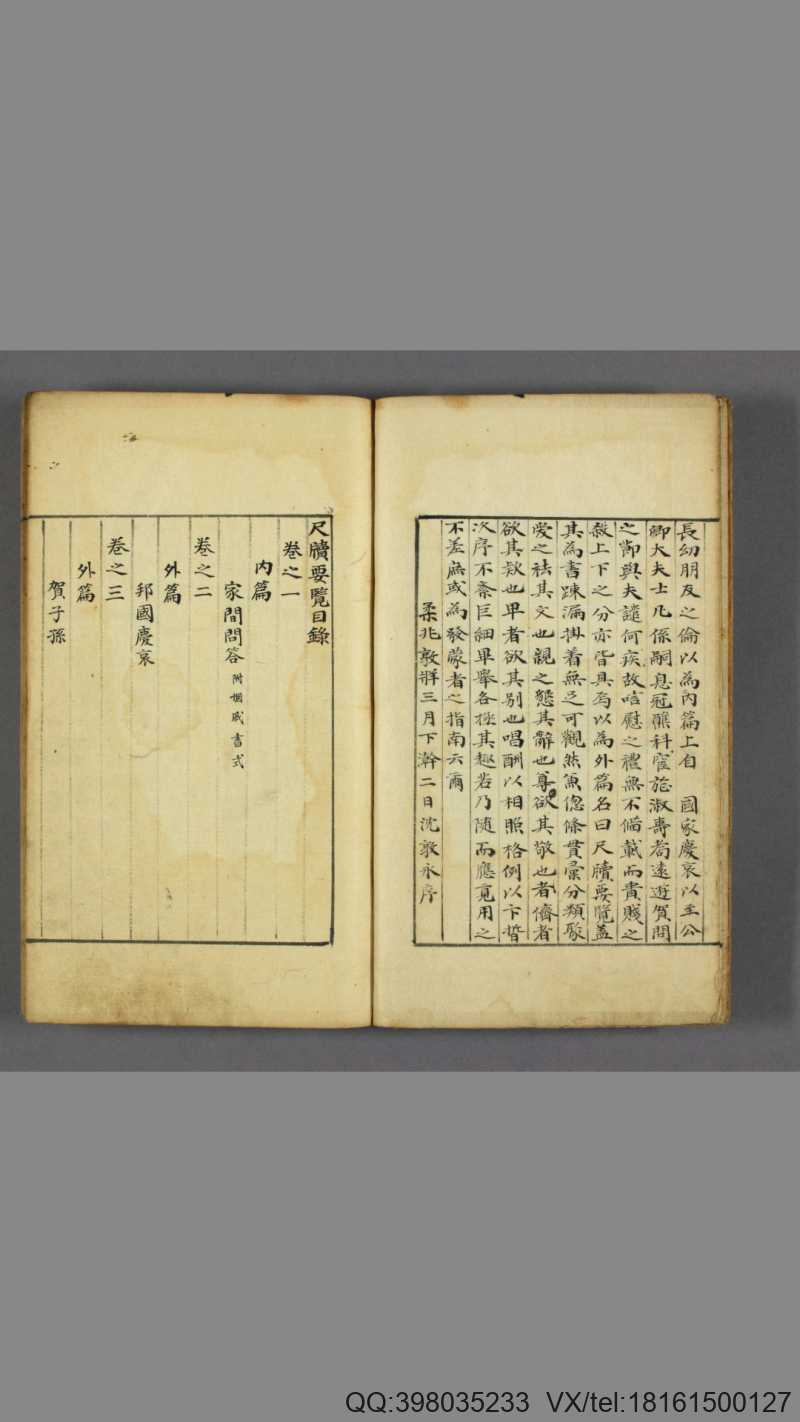 長幼朋友之倫以為內篇上自　國家慶哀以至公
卿大夫士凡係嗣息冠醮科宦旌淑壽耇遠遊賀問
之節與夫譴何疾故唁慰之禮無不俻載而貴賤之
上下之分亦皆具焉以為外篇名曰尺牘要覽盖
其為書踈漏掛着無足可觀然魚條貫彙分類聚
愛之祛其文也親之態其辭也尊欲其敬也者儕者
欲其欵也卑者欲其別也唱酬以相照格例以卞
次序不紊巨細畢舉各極其趣若乃随而應覓用之
不差庶或為發蒙者之指南云爾
柔兆敦牂三月下澣二日沈敦永序
尺牘要覽目錄
卷之一
內篇
家間問答 附姻戚書式
卷之二
外篇
邦國慶哀
卷之三
外篇
賀子孫
QQ:398035233 VX/tel:18161500127